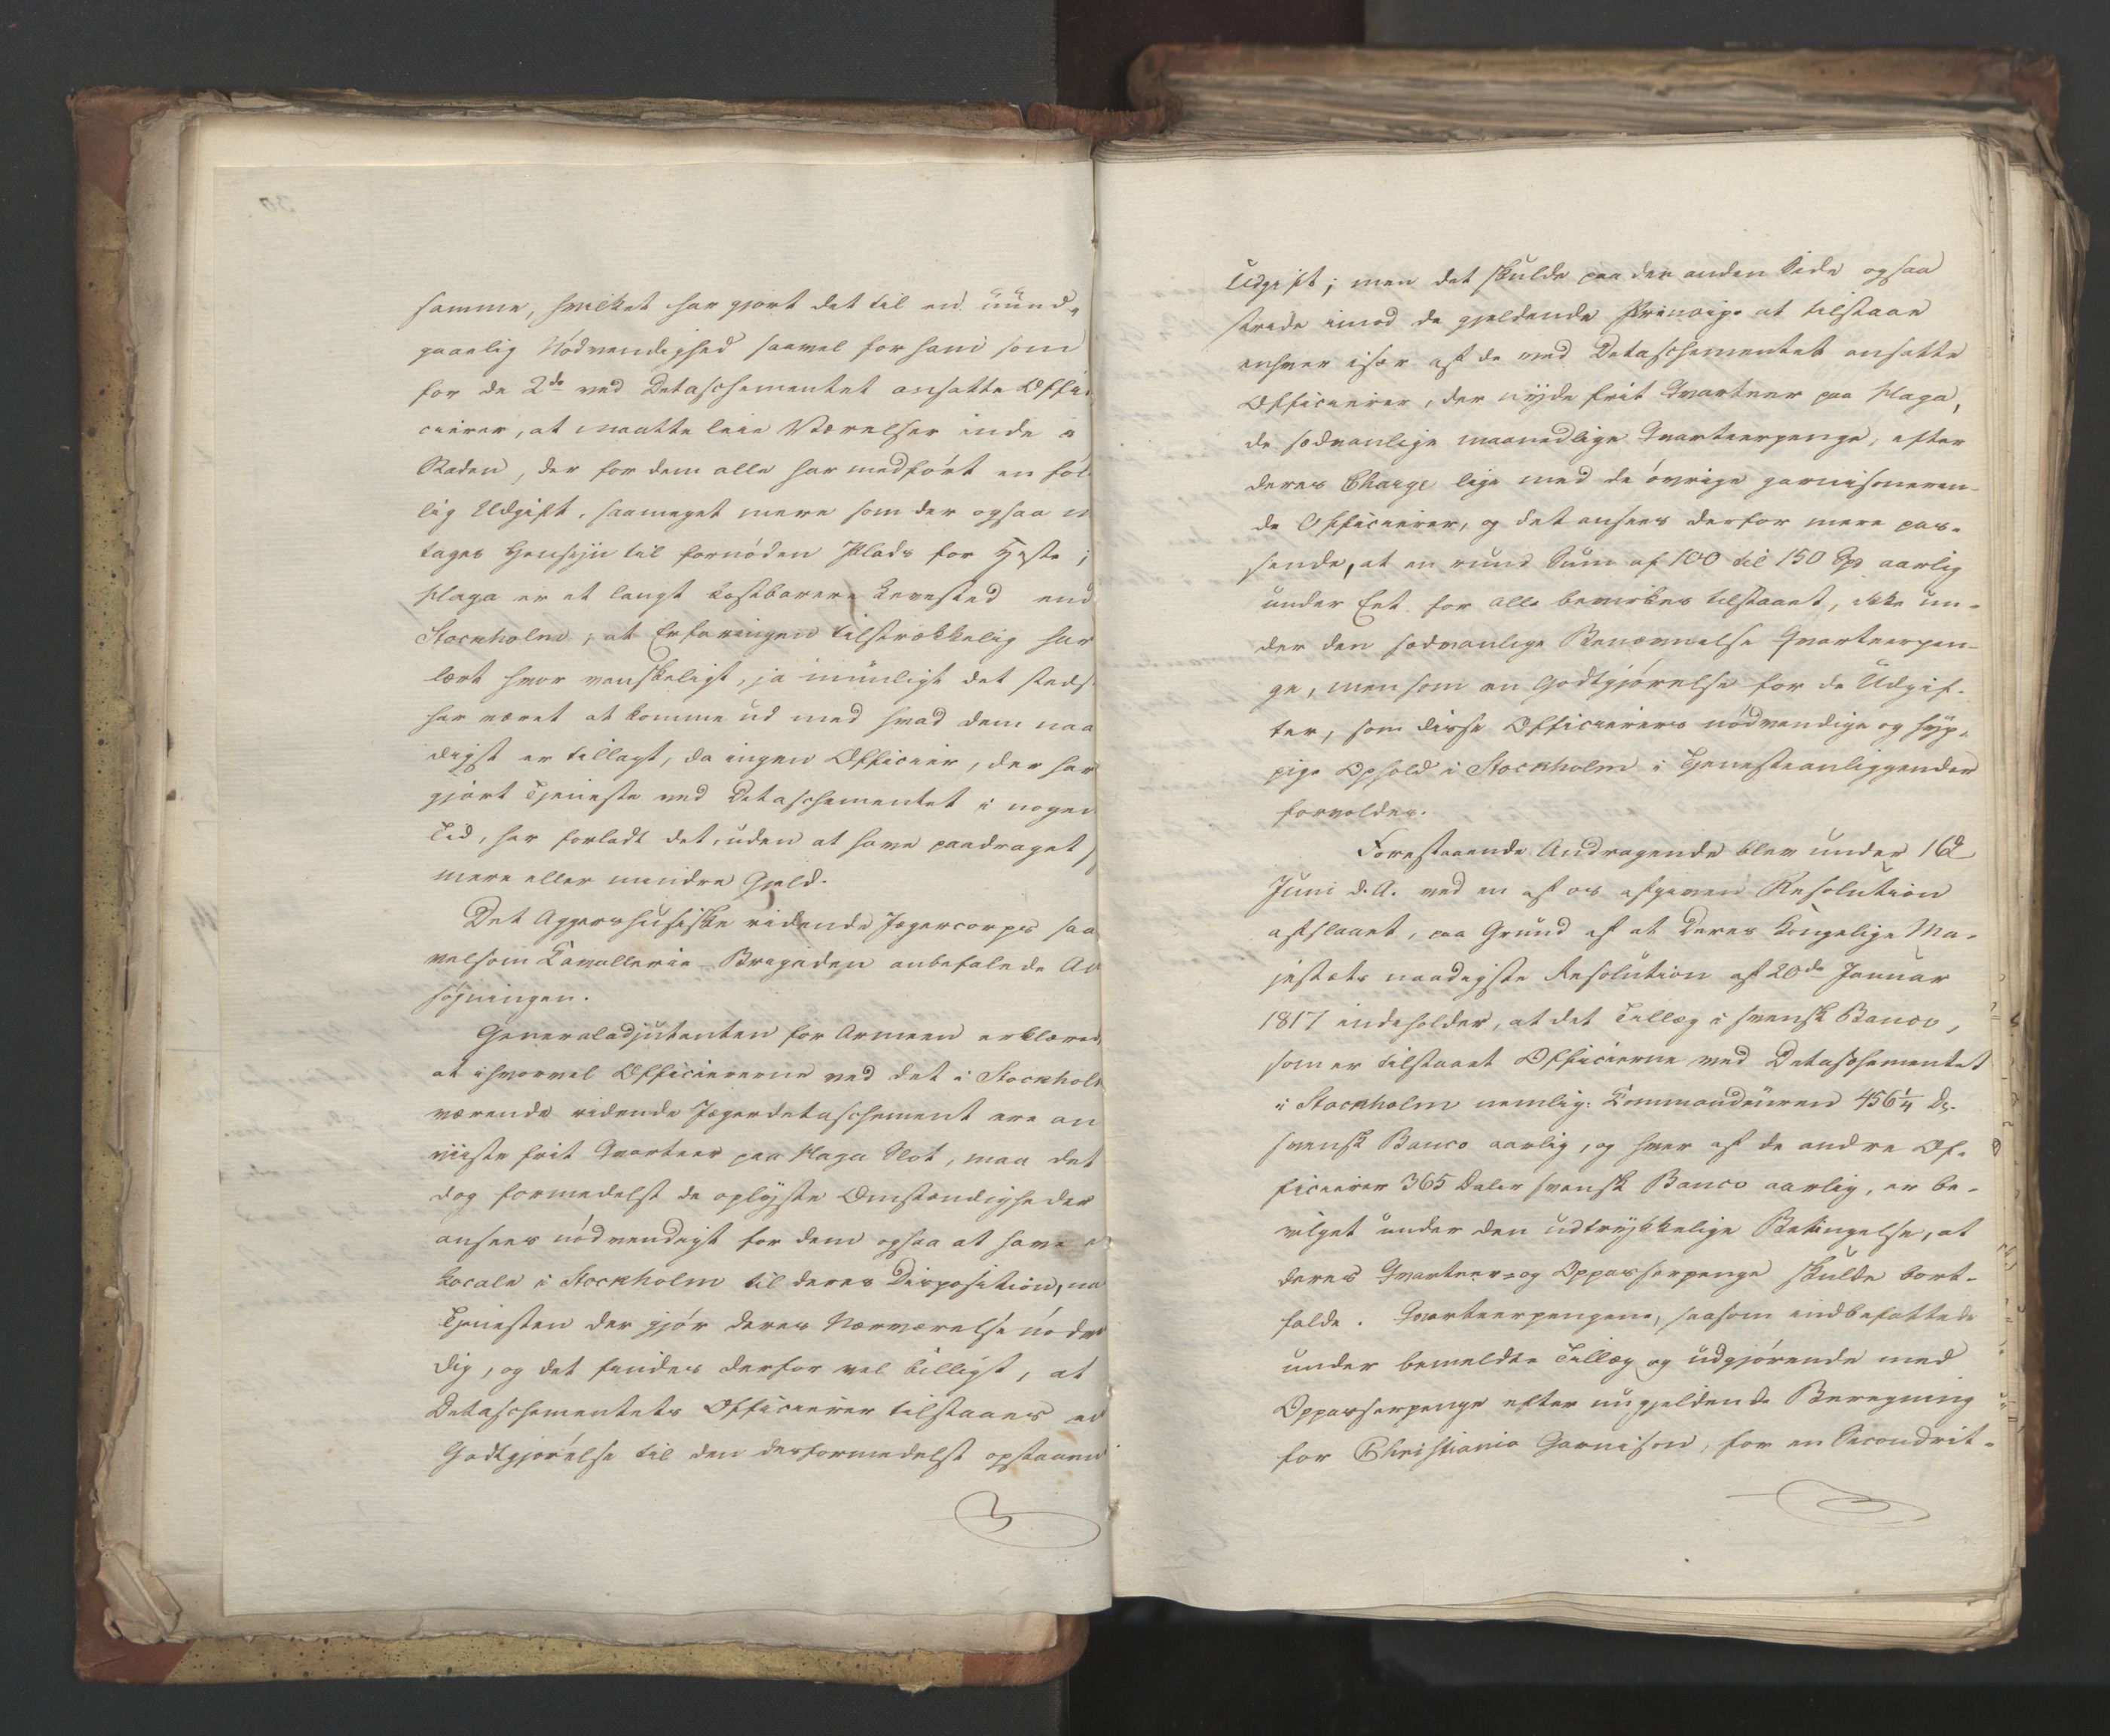 samme, hvilket har gjort det til en uund-
gaaelig Nödvendighed saavel for ham som
for de 2de ved Detaschementet ansatte Offi-
cierer, at maatte leie Værelser inde i
Staden, der for dem alle har medfört en föl-
lig Udgift, saameget mere som der ogsaa
tages Hensyn til fornöden Plads for Heste;
Haga er et langt kostbarere Levested end
Stockholm, at Erfaringen tilstrækkelig har
lært hvor vanskeligt, ja umuligt det steds
har været at komme ud med hvad dem naa
digst er tillagt, da ingen Officier, der har
gjort Tjeneste ved Detaschementet i nogen
Tid, har forladt det, uden at have paadraget
mere eller mindre Gjeld.
Det Aggershusiske ridende Jægercorps saa
velsom Cavallerie-Brigaden anbefalede An
søgningen.
Generaladjutanten for Armeen erklærede
at ihvorvel Officiererne ved det i Stockholm
værende ridende Jægerdetaschement ere an
viiste frit Qvarteer paa Haga Slot, maa det
dog formedelst de oplyste Omstændigheder
ansees nödvendigt for dem ogsaa at have
Locale i Stockholm til deres Disposition, naar
Tjenesten der gjör deres Nærværelse nödven
dig, og det findes derfor vel billigt, at
Detaschementets Officierer tilstaaes en
Godtgjörelse til den desformedelst opstaaende
Udgift; men det skulde paa den anden Side ogsaa
stride imod de gjeldende Princip. at tilstaae
enhver især af de ved Detaschementet ansatte
Officierer, der nyde frit Qvarteer paa Haga,
de sædvanlige maanedlige Qvarteerpenge, efter
deres Charge lige med de övrige garnisoneren-
de Officierer, og det ansees derfor mere pas-
sende, at en rund Sum af 100 til 150 Spd aarlig
under Eet for alle bevirkes tilstaaet, ikke un-
der den sædvanlige Benævnelse Qvarteerpen-
ge, men som en Godtgjörelse for de Udgif-
ter, som disse Officierers nödvendige og hyp-
pige Ophold i Stockholm i Tjenesteanliggender
forvolder.
Forestaaende Andragende blev under 16de
Juni d. A. ved en af os afgiven Resolution
afslaaet, paa Grund af at Deres Kongelige Ma-
jestæts naadigste Resolution af 20de Januar
1817 indeholder, at det Tillæg i svensk Banco,
som er tilstaaet Officierne ved Detaschementet
i Stockholm nemlig: Commandeuren 456¼ Dr.
svensk Banco aarlig, og hver af de andre Of-
ficierer 365 Daler svensk Banco aarlig, er be-
vilget under den udtrykkelige Betingelse, at
deres Qvarteer- og Oppasserpenge skulde bort-
falde. Qvarteerpengene, saasom indbefattede
under bemeldte Tillæg og udgjörende med
Oppasserpenge efter nugjeldende Beregning
for Christiania Garnison, for en Secondrit-